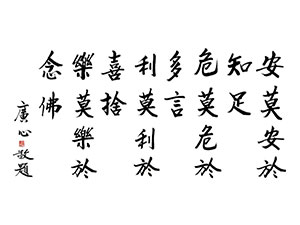 安莫安於
知足
危莫危於
多言
利莫利於
喜捨
樂莫樂於
念佛
廣心敬題